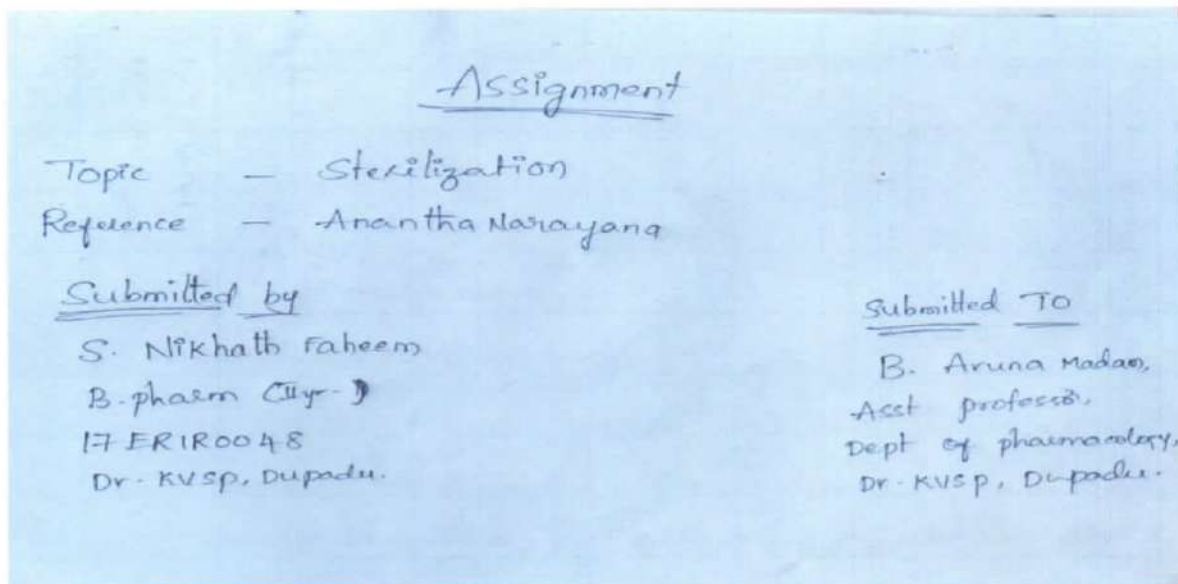 Assignment
Topic - Sterilization
Reference - Anantha Narayana
Submitted by
S. Nikhath Faheem
B. pharm (II yr)
17ER1R0048
Dr. KVSP, Dupadu.
Submitted To
B. Aruna Madam,
Asst professor,
Dept of pharmacology,
Dr. KVSP, Dupadu.